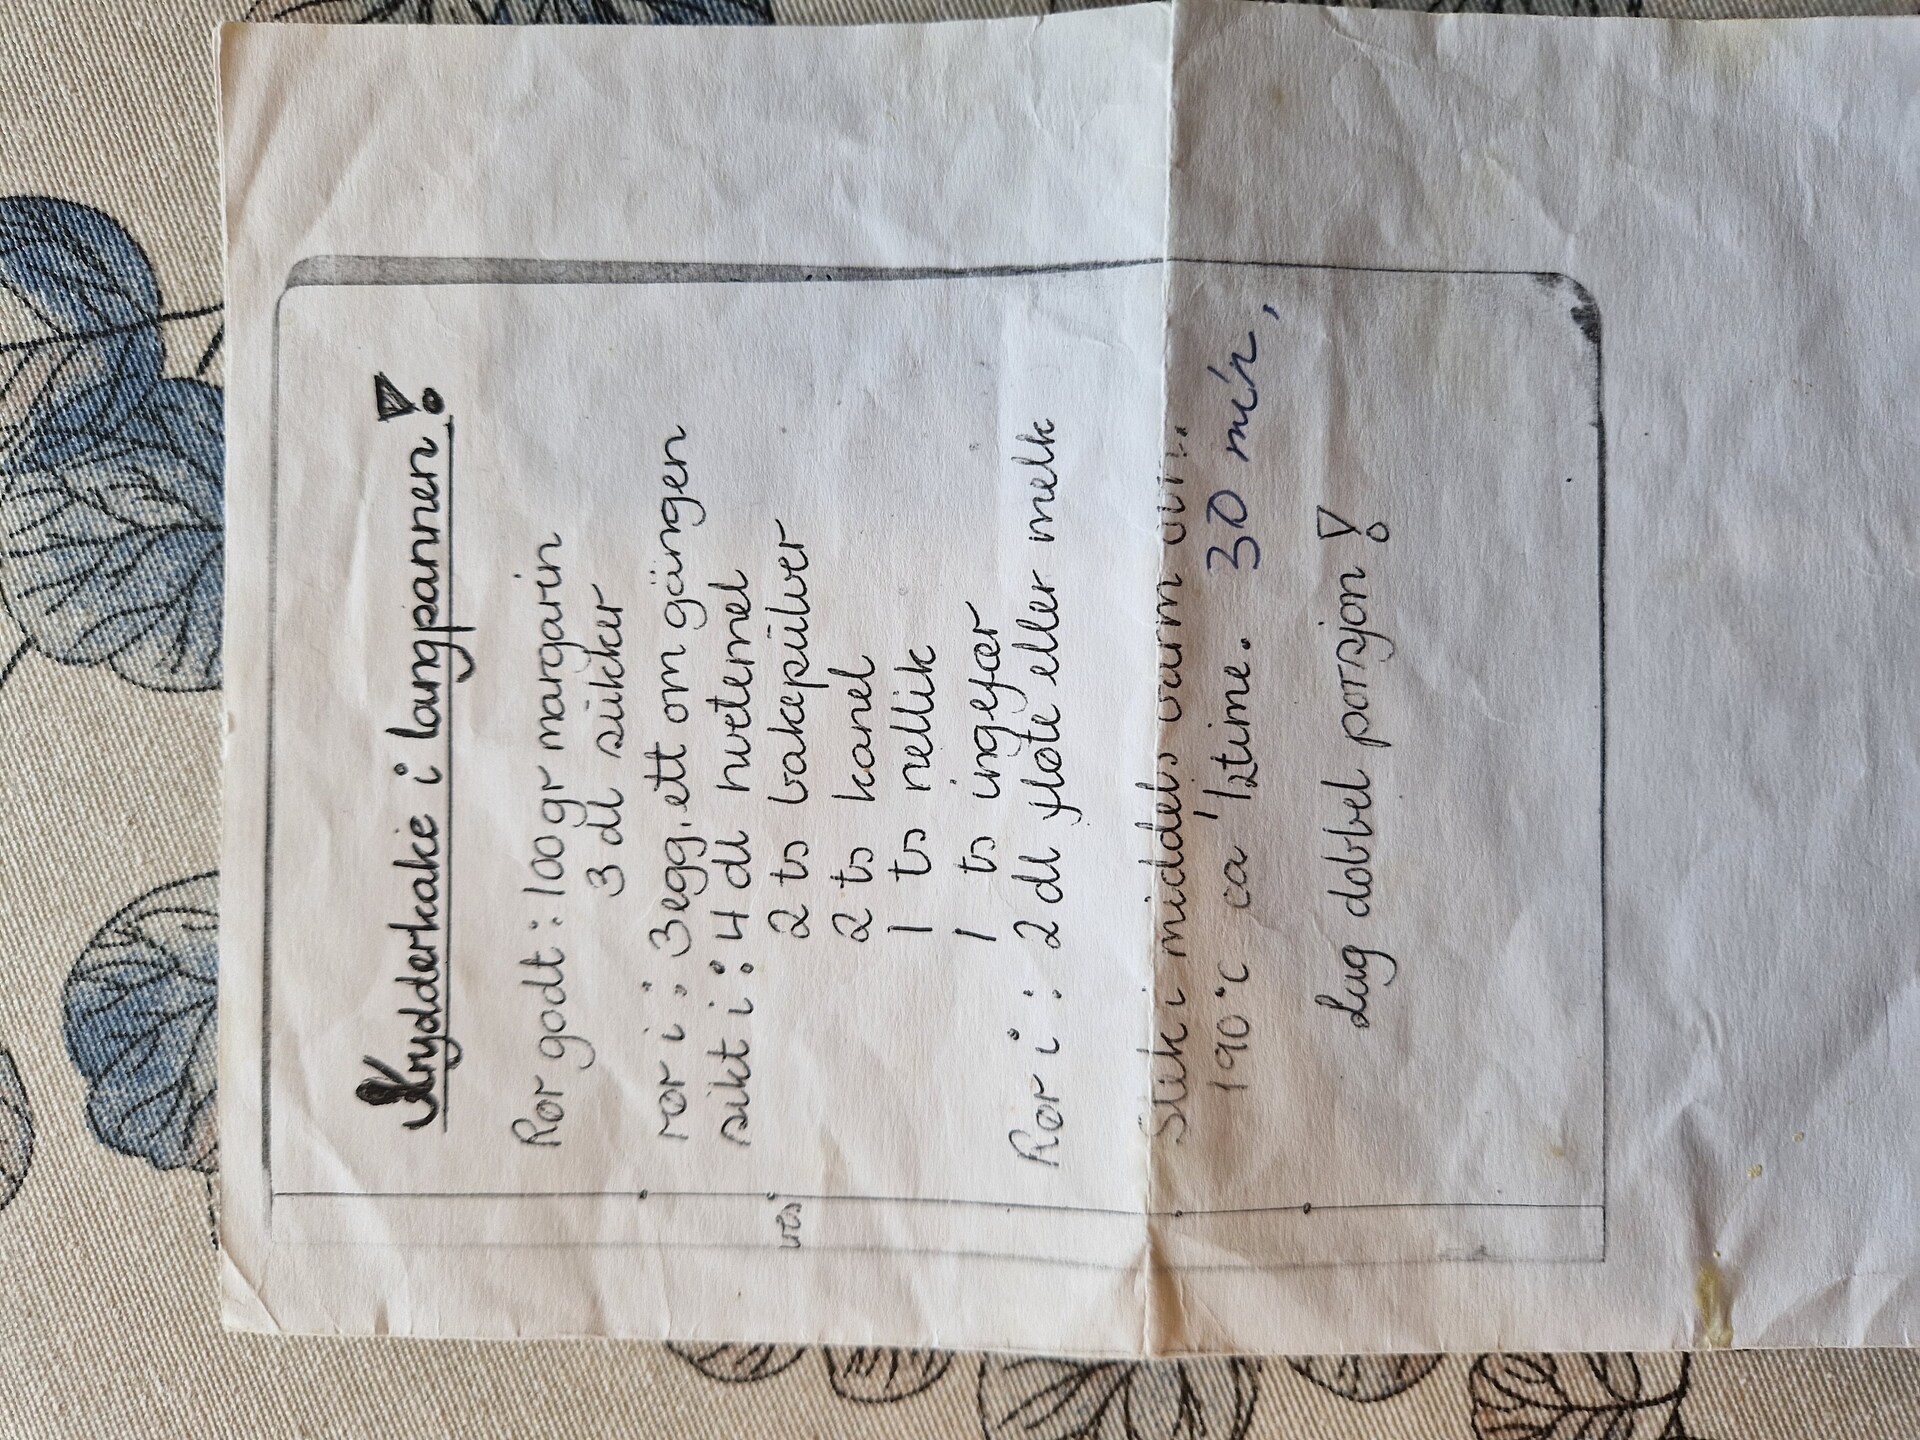 Krydderkake i langpannen!
Rør godt: 100 gr margarin
3 dl sukker
rør i: 3 egg, ett om gången
sikt i: 4 dl hvetemel
2 ts bakepulver
2 ts kanel
1 ts nellik
1 ts ingefær
Rør i: 2 dl fløte eller melk
Stek i middels varm ovn.
190°C ca 1/2 time. 30 min,
Lag dobbel porsjon!